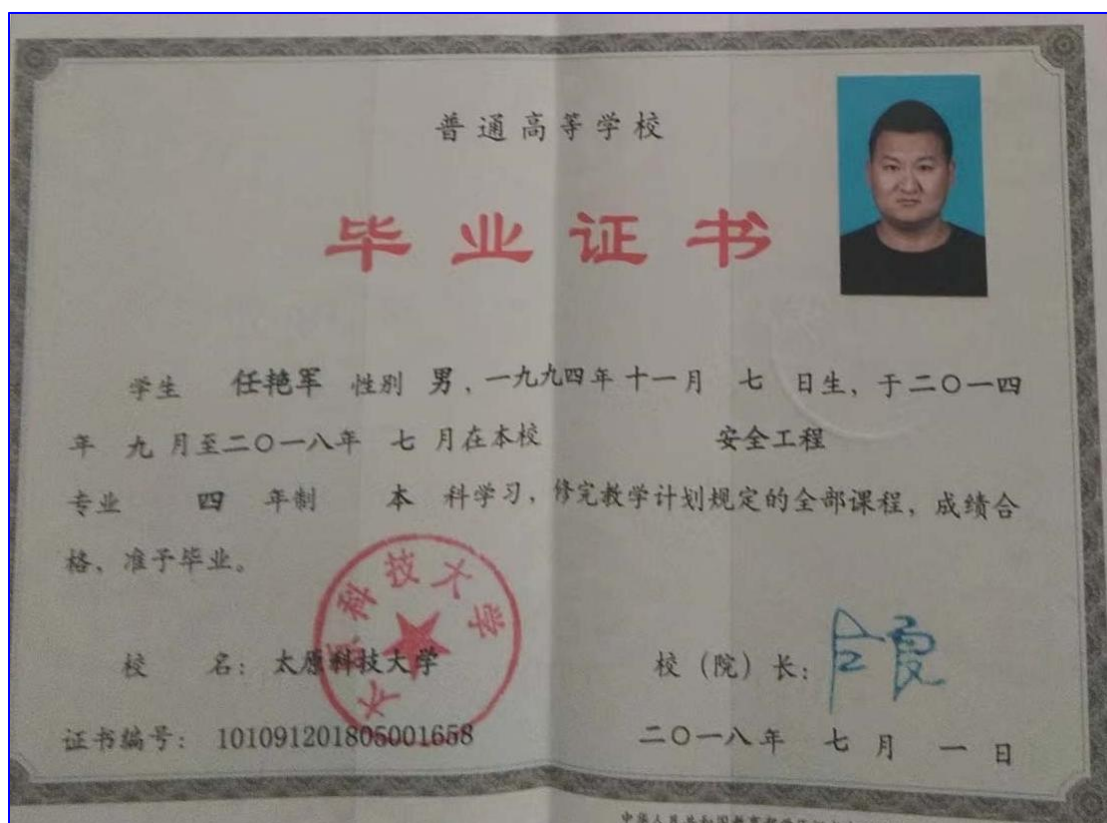 普通高等学校
毕业证书
学生 任艳军 性别 男，一九九四年十一月 七 日生，于二〇一四
年 九 月至二〇一八年 七 月在本校 安全工程
专业 四 年制 本 科学习，修完教学计划规定的全部课程，成绩合
格，准予毕业。
科技大学
校 名：太原科技大学 校（院）长：
证书编号：101091201805001658 二〇一八年 七 月 一 日